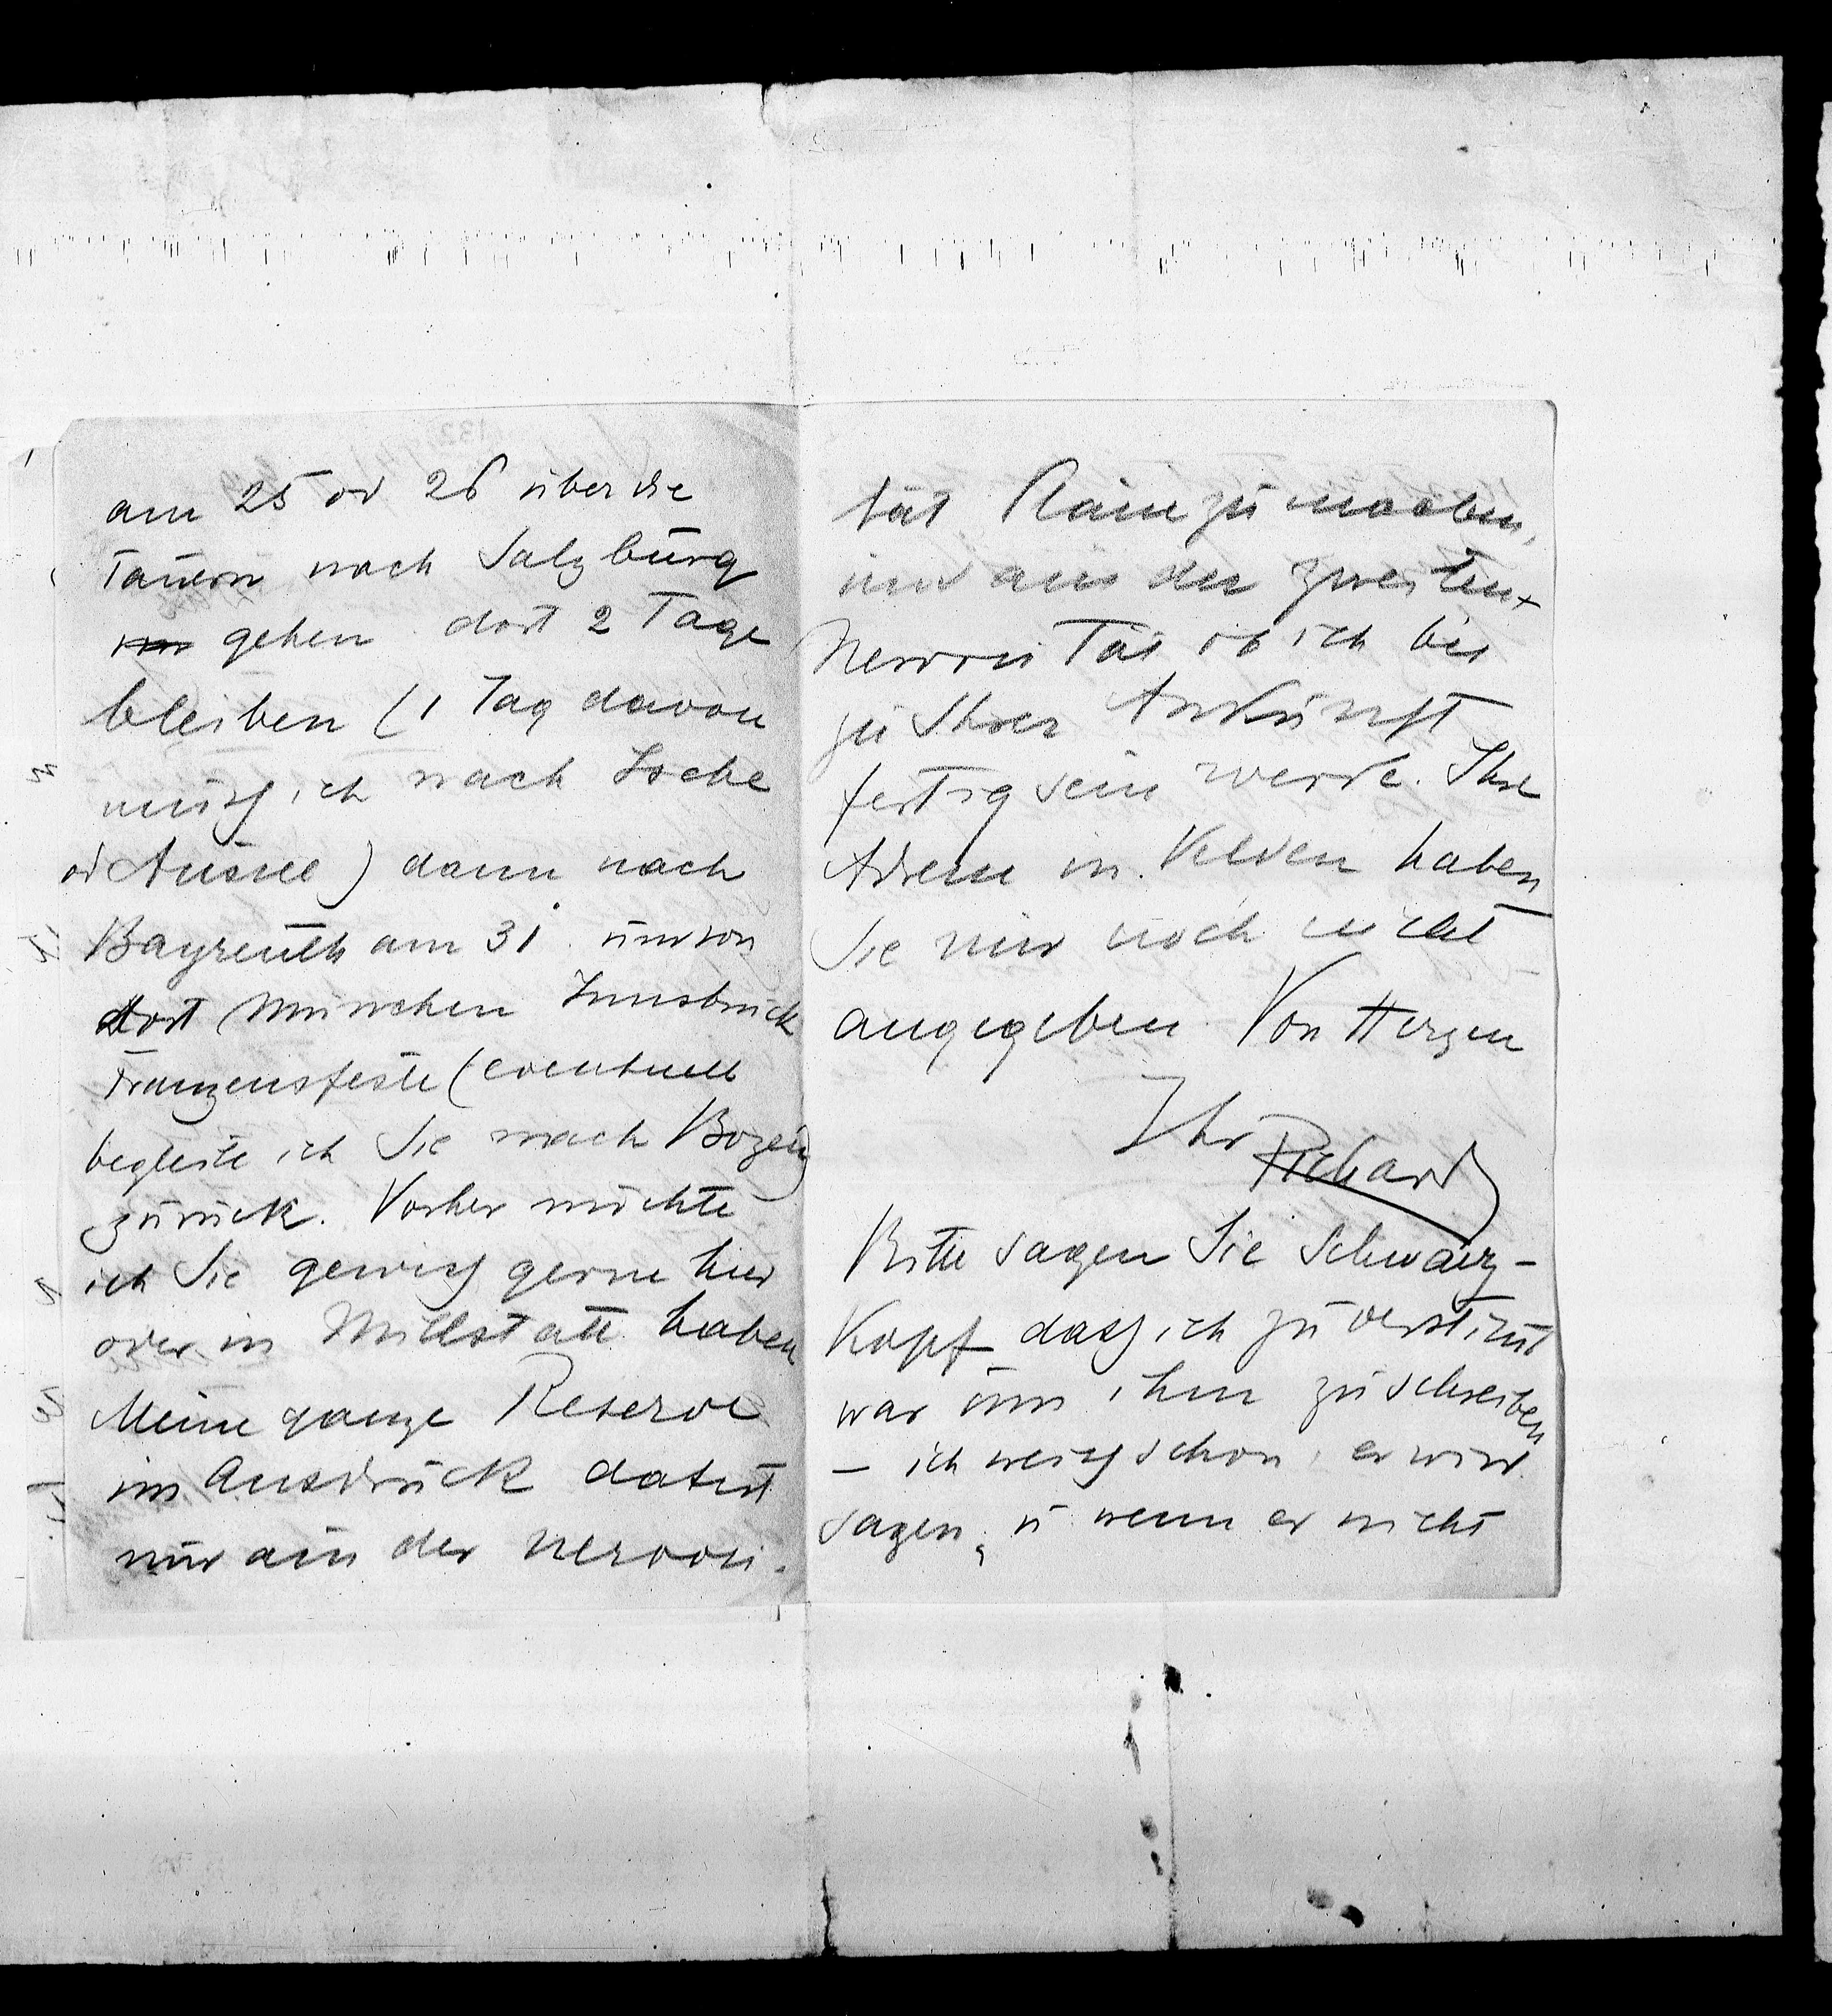 am 25 od 26 über die
Tauern nach Salzburg
gehen dort 2 Tage
bleiben (1 Tag davon
muß ich nach Ischl
od Aussee) dann nach
Bayreuth am 31. und von
dort München Innsbruck
Franzensfeste (eventuell
begleite ich Sie nach Bozen)
zurück. Vorher möchte
ich Sie gewiß gerne hier
oder in Millstatt haben
Meine ganze Reserve
im Ausdruck datirt
nur aus der Nervosi-
tät Pläne zu machen,
und aus der zweiten
Nervosität ob ich bis
zu Ihrer Ankunft
fertig sein werde. Ihre
Adresse in Velden haben
Sie mir noch nicht
angegeben. Von Herzen
Ihr Richard
Bitte sagen Sie Schwarz-
Kopf daß ich zu verstimmt
war um ihm zu schreiben
– ich weiß schon, er wird
sagen, „u wenn er nicht